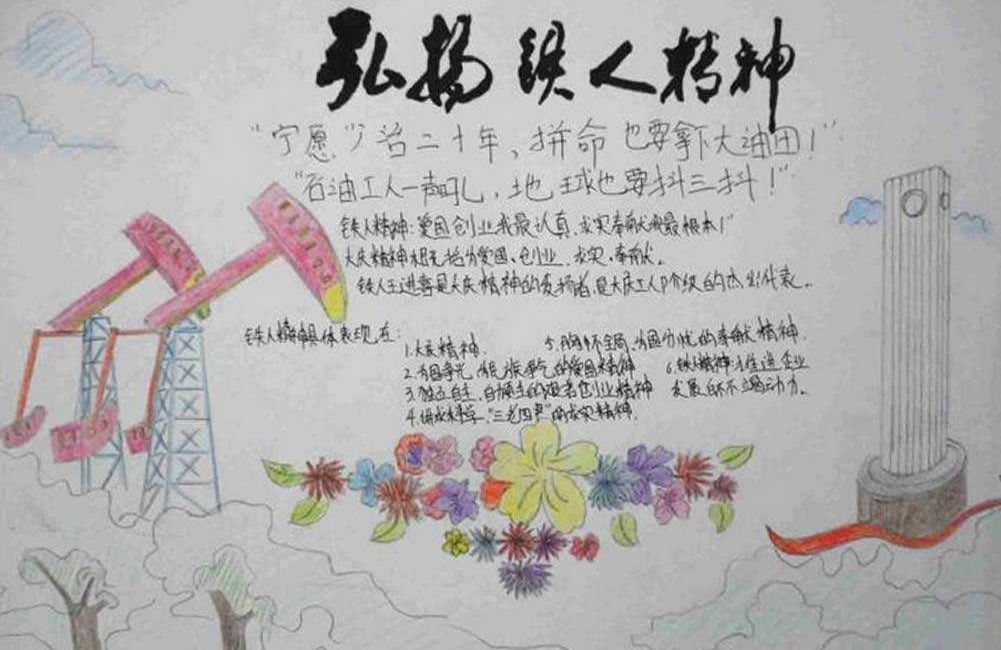 弘扬铁人精神
“宁愿少活二十年，拼命也要拿下大油田！”
“石油工人一声吼，地球也要抖三抖！”
铁人精神：爱国创业我最认真，求实奉献我最根本！
大庆精神概括为爱国、创业、求实、奉献。
铁人王进喜是大庆精神的发扬者，是大庆工人阶级的杰出代表。
铁人精神具体表现在：
1.大庆精神.
2.为国争光、为民族争气的爱国精神
3.独立自主、自力更生的艰苦创业精神
4.讲求科学、“三老四严”的求实精神.
5.胸怀全局、为国分忧的奉献精神.
6.铁人精神推进企业
发展的不竭动力.